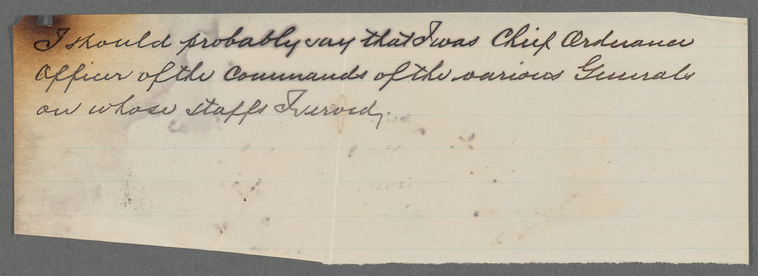 I should probably say that I was Chief Ordnance
Officer of the Commands of the various Generals
on whose staffs I served;